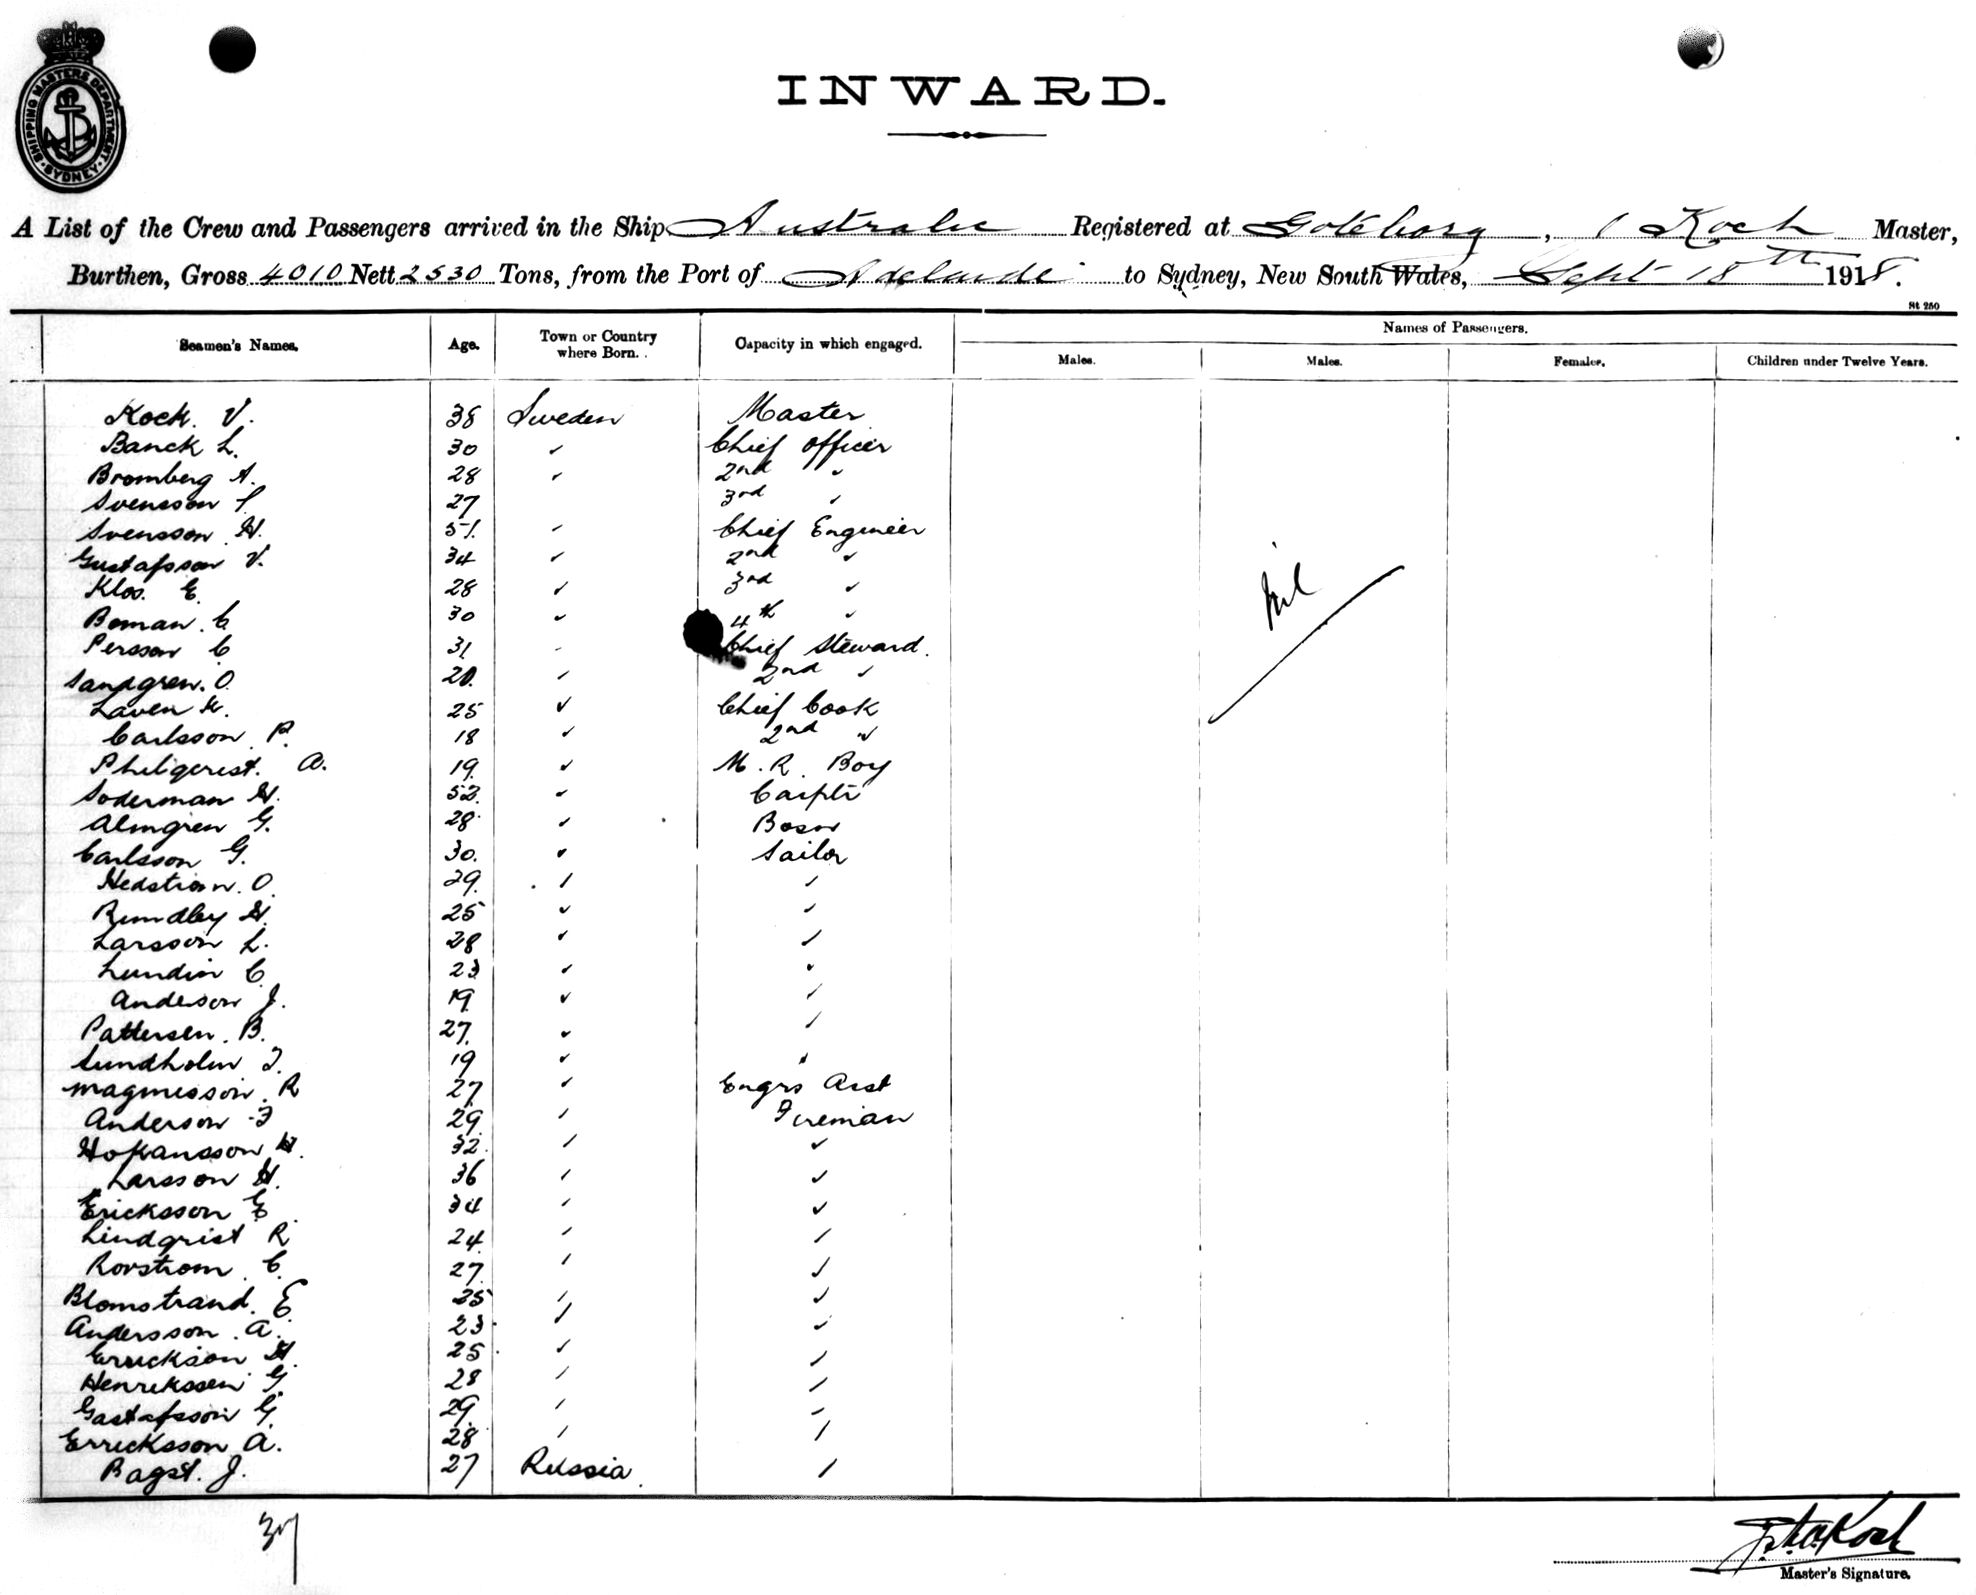 SHIPPING MASTERS DEPARTMENT
SYDNEY
INWARD.
A List of the Crew and Passengers arrived in the Ship Australic Registered at Goteborg, Koch Master,
Burthen, Gross 4010 Nett 2530 Tons, from the Port of Adelaide to Sydney, New South Wales, Sept 18th 1918.
St 250
Seamen's Names. Age. Town or Country where Born. Capacity in which engaged. Names of Passengers.
Males. Males. Females. Children under Twelve Years.
Koch. V. 38 Sweden Master
Banck L. 30 " Chief Officer
Bromberg A. 28 " 2nd "
Svensson 27 3rd "
Svensson H. 51 " Chief Engineer
Gustafsson V. 34 " 2nd "
Klos. E. 28 " 3rd "
Boman. C 30 " 4th "
Persson C 31 " Chief Steward.
Sandgren. O. 20. " 2nd "
Laven K. 25 " Chief Cook
Carlsson R. 18 " 2nd "
Philigerist. A. 19. " M. R. Boy
Soderman H. 52. " Carptr
Almgren G. 28 " Bosn
Carlsson G. 30. " Sailor
Hedstrom. O. 29. " "
Rundley H. 25 " "
Larsson L. 28 " "
Lundin C. 23 " "
Anderson J. 19 " "
Pattersen. B. 27. " "
Sundholm J. 19 " "
Magnusson. R 27. " Engrs Asst
Anderson F 29. " Fireman
Hokansson H. 32. " "
Larsson H. 36 " "
Ericksson E. 34 " "
Lindqrist R 24. " "
Rorstrom C. 27. " "
Blomstrand. E 25 " "
Andersson. A. 23. " "
Errickson H. 25. " "
Henrikssen G. 28 " "
Gastafsson G. 29. " "
Erricksson A. 28 " "
Bagst. J. 27 Russia "
Nil
37
Koch
Master's Signature.